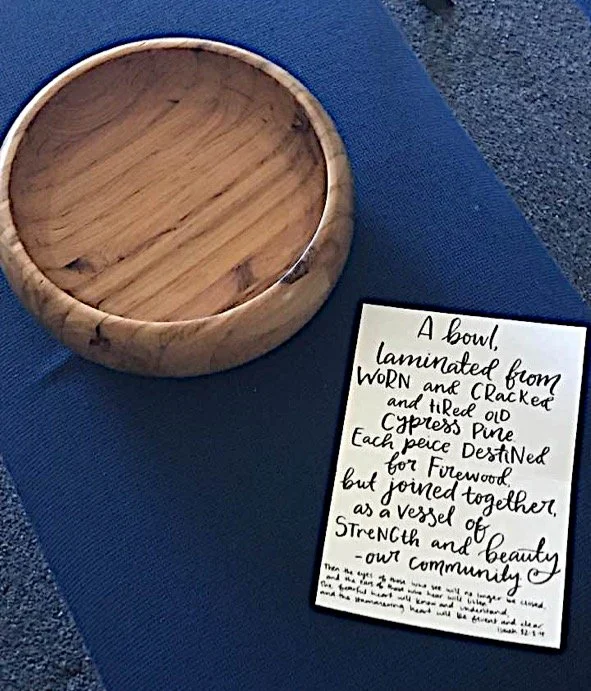 A bowl,
laminated from
WORN and CRacKed
and tiRed OLD
Cypress Pine
Each peice DestiNed
for Firewood,
but joined together,
as a vessel of
STreNGth and beauty
-our community
Then the eyes of those who see will no longer be closed,
and the ears of those who hear will listen.
The fearful heart will know and understand,
and the stammering heart will be fluent and clear
Isaiah 32:3-4